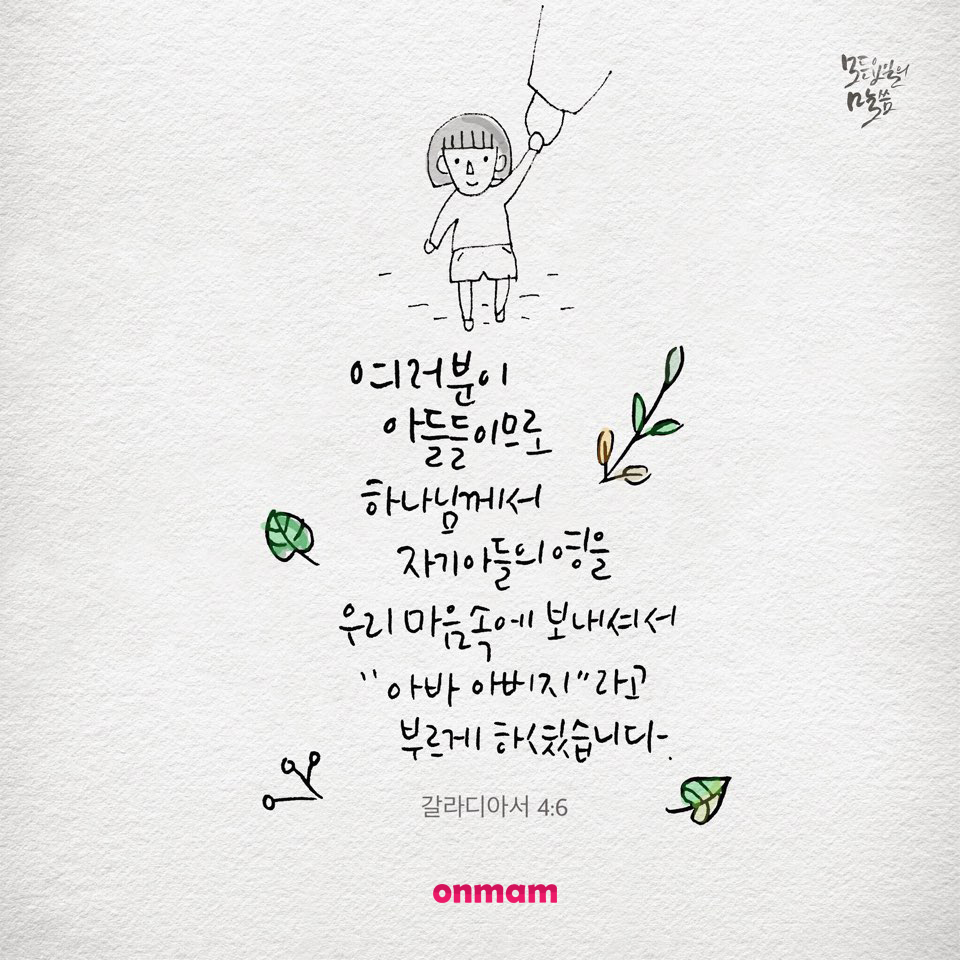 여러분이
아들들이므로
하나님께서
자기아들의 영을
우리 마음속에 보내셔서
"아바 아버지"라고
부르게 하셨습니다.
갈라디아서 4:6
onmam
말씀